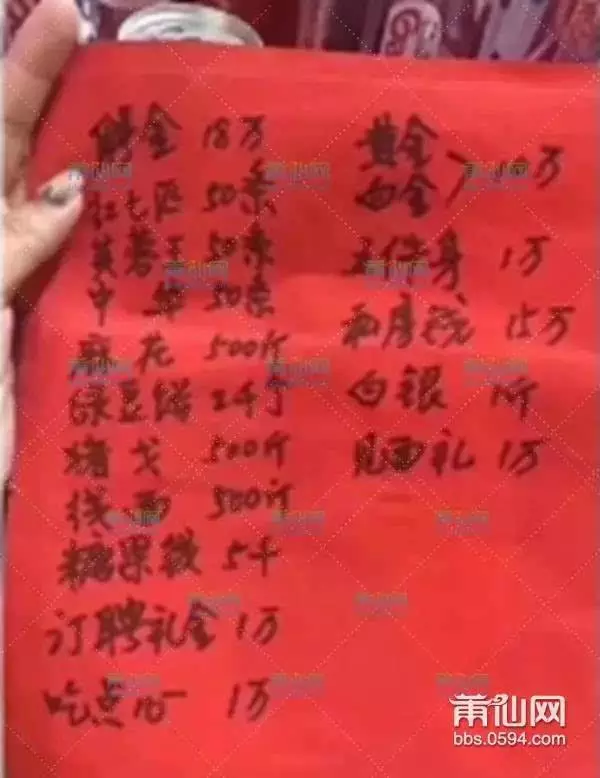 聘金 18万
红七匹 50条
芙蓉王 50条
中华 50条
麻花 500斤
绿豆饼 2千个
猪 500斤
线面 500斤
糖果袋 5千
订聘礼金 1万
吃点心 1万
黄金
白金 万
1万
私房钱 15万
白银 1斤
见面礼 1万
莆仙网
bbs.0594.com